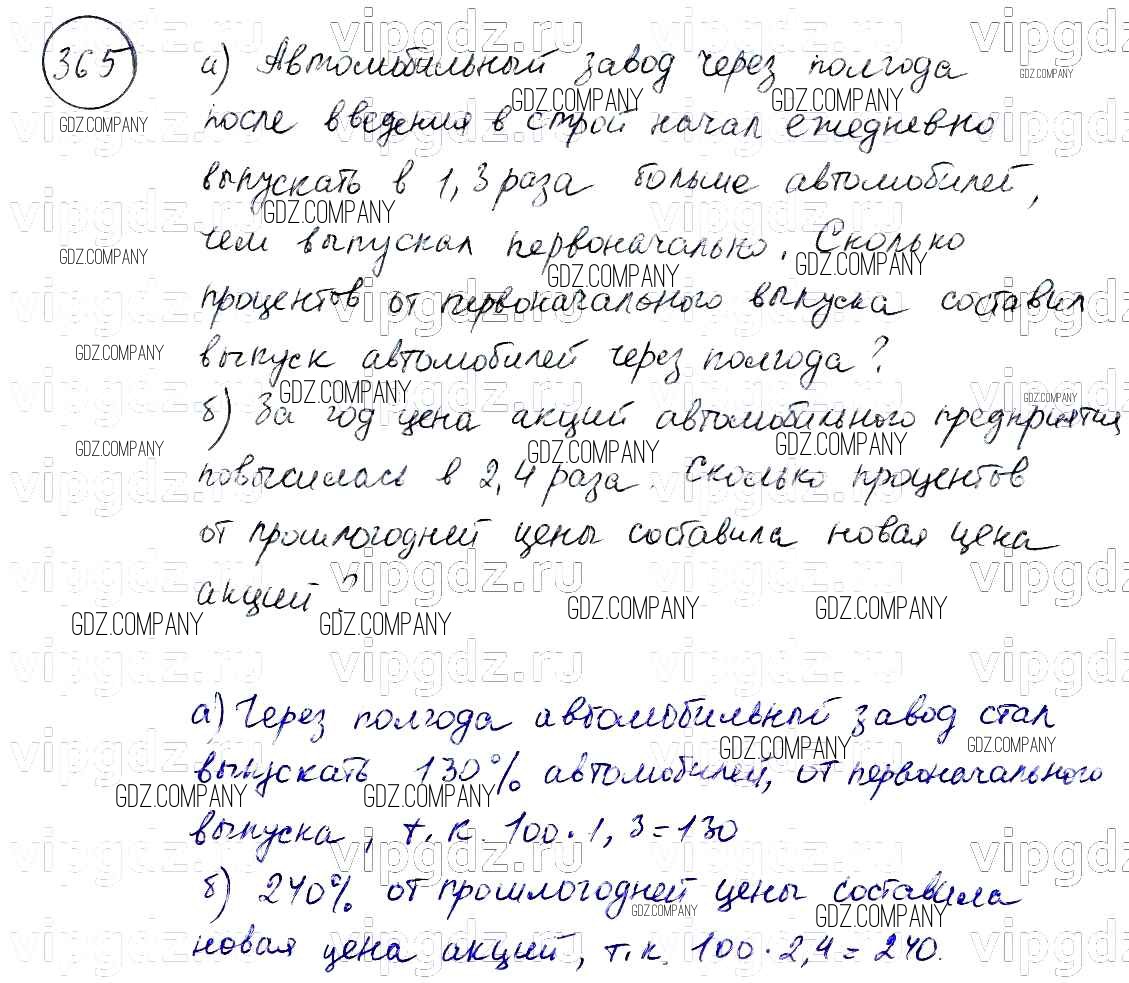 365
а) Автомобильный завод через полгода
после введения в строй начал ежедневно
выпускать в 1,3 раза больше автомобилей,
чем выпускал первоначально. Сколько
процентов от первоначального выпуска составил
выпуск автомобилей через полгода?
б) За год цена акций автомобильного предприятия
повысилась в 2,4 раза. Сколько процентов
от прошлогодней цены составила новая цена
акций?
а) Через полгода автомобильный завод стал
выпускать 130% автомобилей, от первоначального
выпуска, т.к. 100·1,3=130
б) 240% от прошлогодней цены составила
новая цена акций, т.к. 100·2,4=240.
vipgdz.ru
GDZ.COMPANY